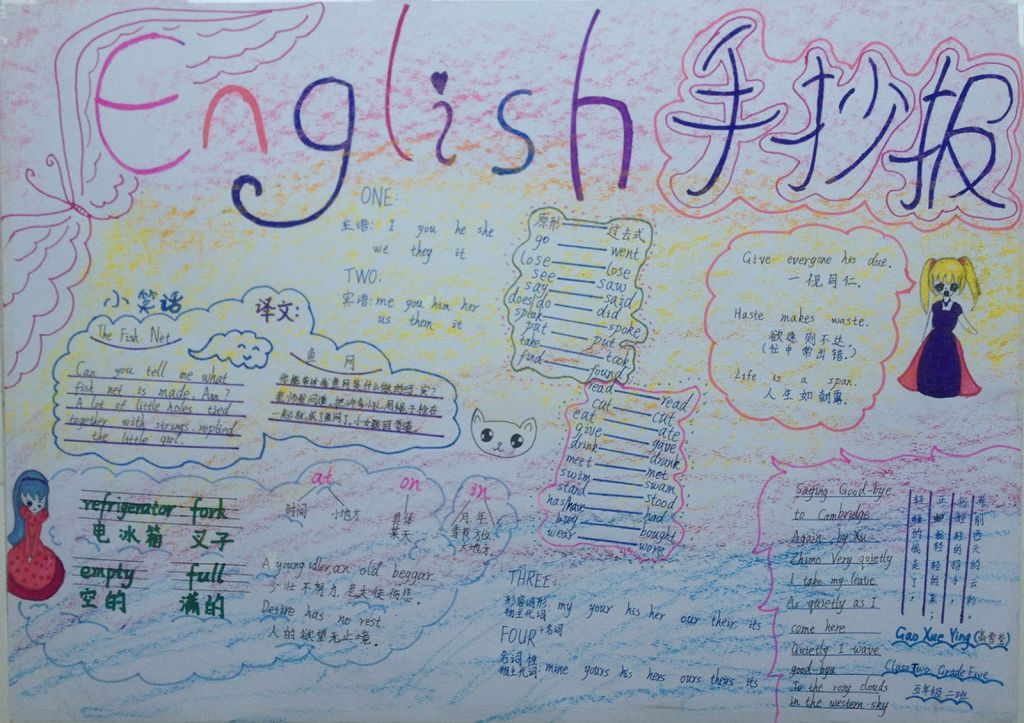 English 手抄报
ONE:
主语: I you he she
we they it
TWO:
宾语: me you him her
us them it
原形 过去式
go went
lose lose
see saw
say said
does/do did
speak spoke
put put
take took
find found
read read
cut cut
eat ate
give gave
drink drank
meet met
swim swam
stand stood
has/have had
buy bought
wear wore
Give everyone his due.
一视同仁.
Haste makes waste.
欲速则不达.
(忙中常出错.)
Life is a span.
人生如朝露.
小笑话
The Fish Net
Can you tell me what
fish net is made. Ann?
A lot of little holes tied
together with strings. replied
the little girl.
译文:
鱼网
你能告诉我鱼网是什么做的吗,安?
老师发问道.把许多小孔用绳子栓在
一起就成了鱼网了.小女孩回答道.
refrigerator fork
电冰箱 叉子
empty full
空的 满的
at on in
时间 小地方
具体
某天
月年
季节方位
大地方.
A young idler, an old beggar.
少壮不努力,老大徒伤悲.
Desire has no rest.
人的欲望无止境.
THREE:
形容词形
物主代词 my your his her our their its
+名词
FOUR
名词性
物主代词: mine yours his hers ours theirs its
Saying Good-bye
to Cambridge
Again by Xu
Zhimo Very quietly
I take my leave
As quietly as I
come here
Quietly I wave
good-bye
To the rosy clouds
in the western sky
轻轻的我走了,
正如我轻轻的来;
我轻轻的招手,
作别西天的云彩
Gao Xue Ying (高雪莹)
Class Two Grade Five
五年级二班